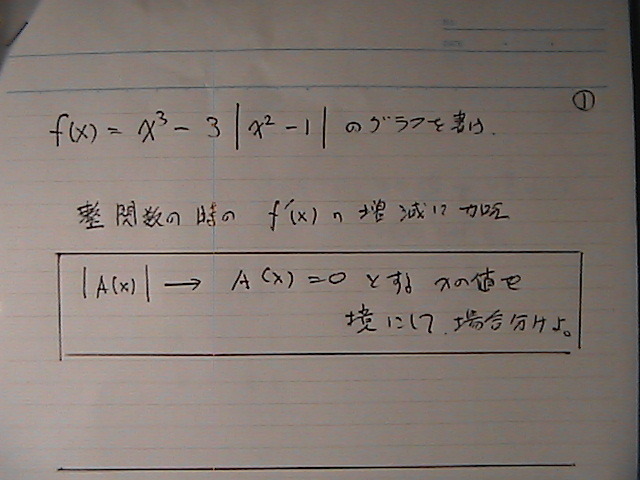 ①
f(x) = x³ - 3 | x² - 1 | のグラフを書け.
整関数の時の f'(x) の増減に加え
|A(x)| → A(x) = 0 とする xの値を
境にして、場合分けよ。